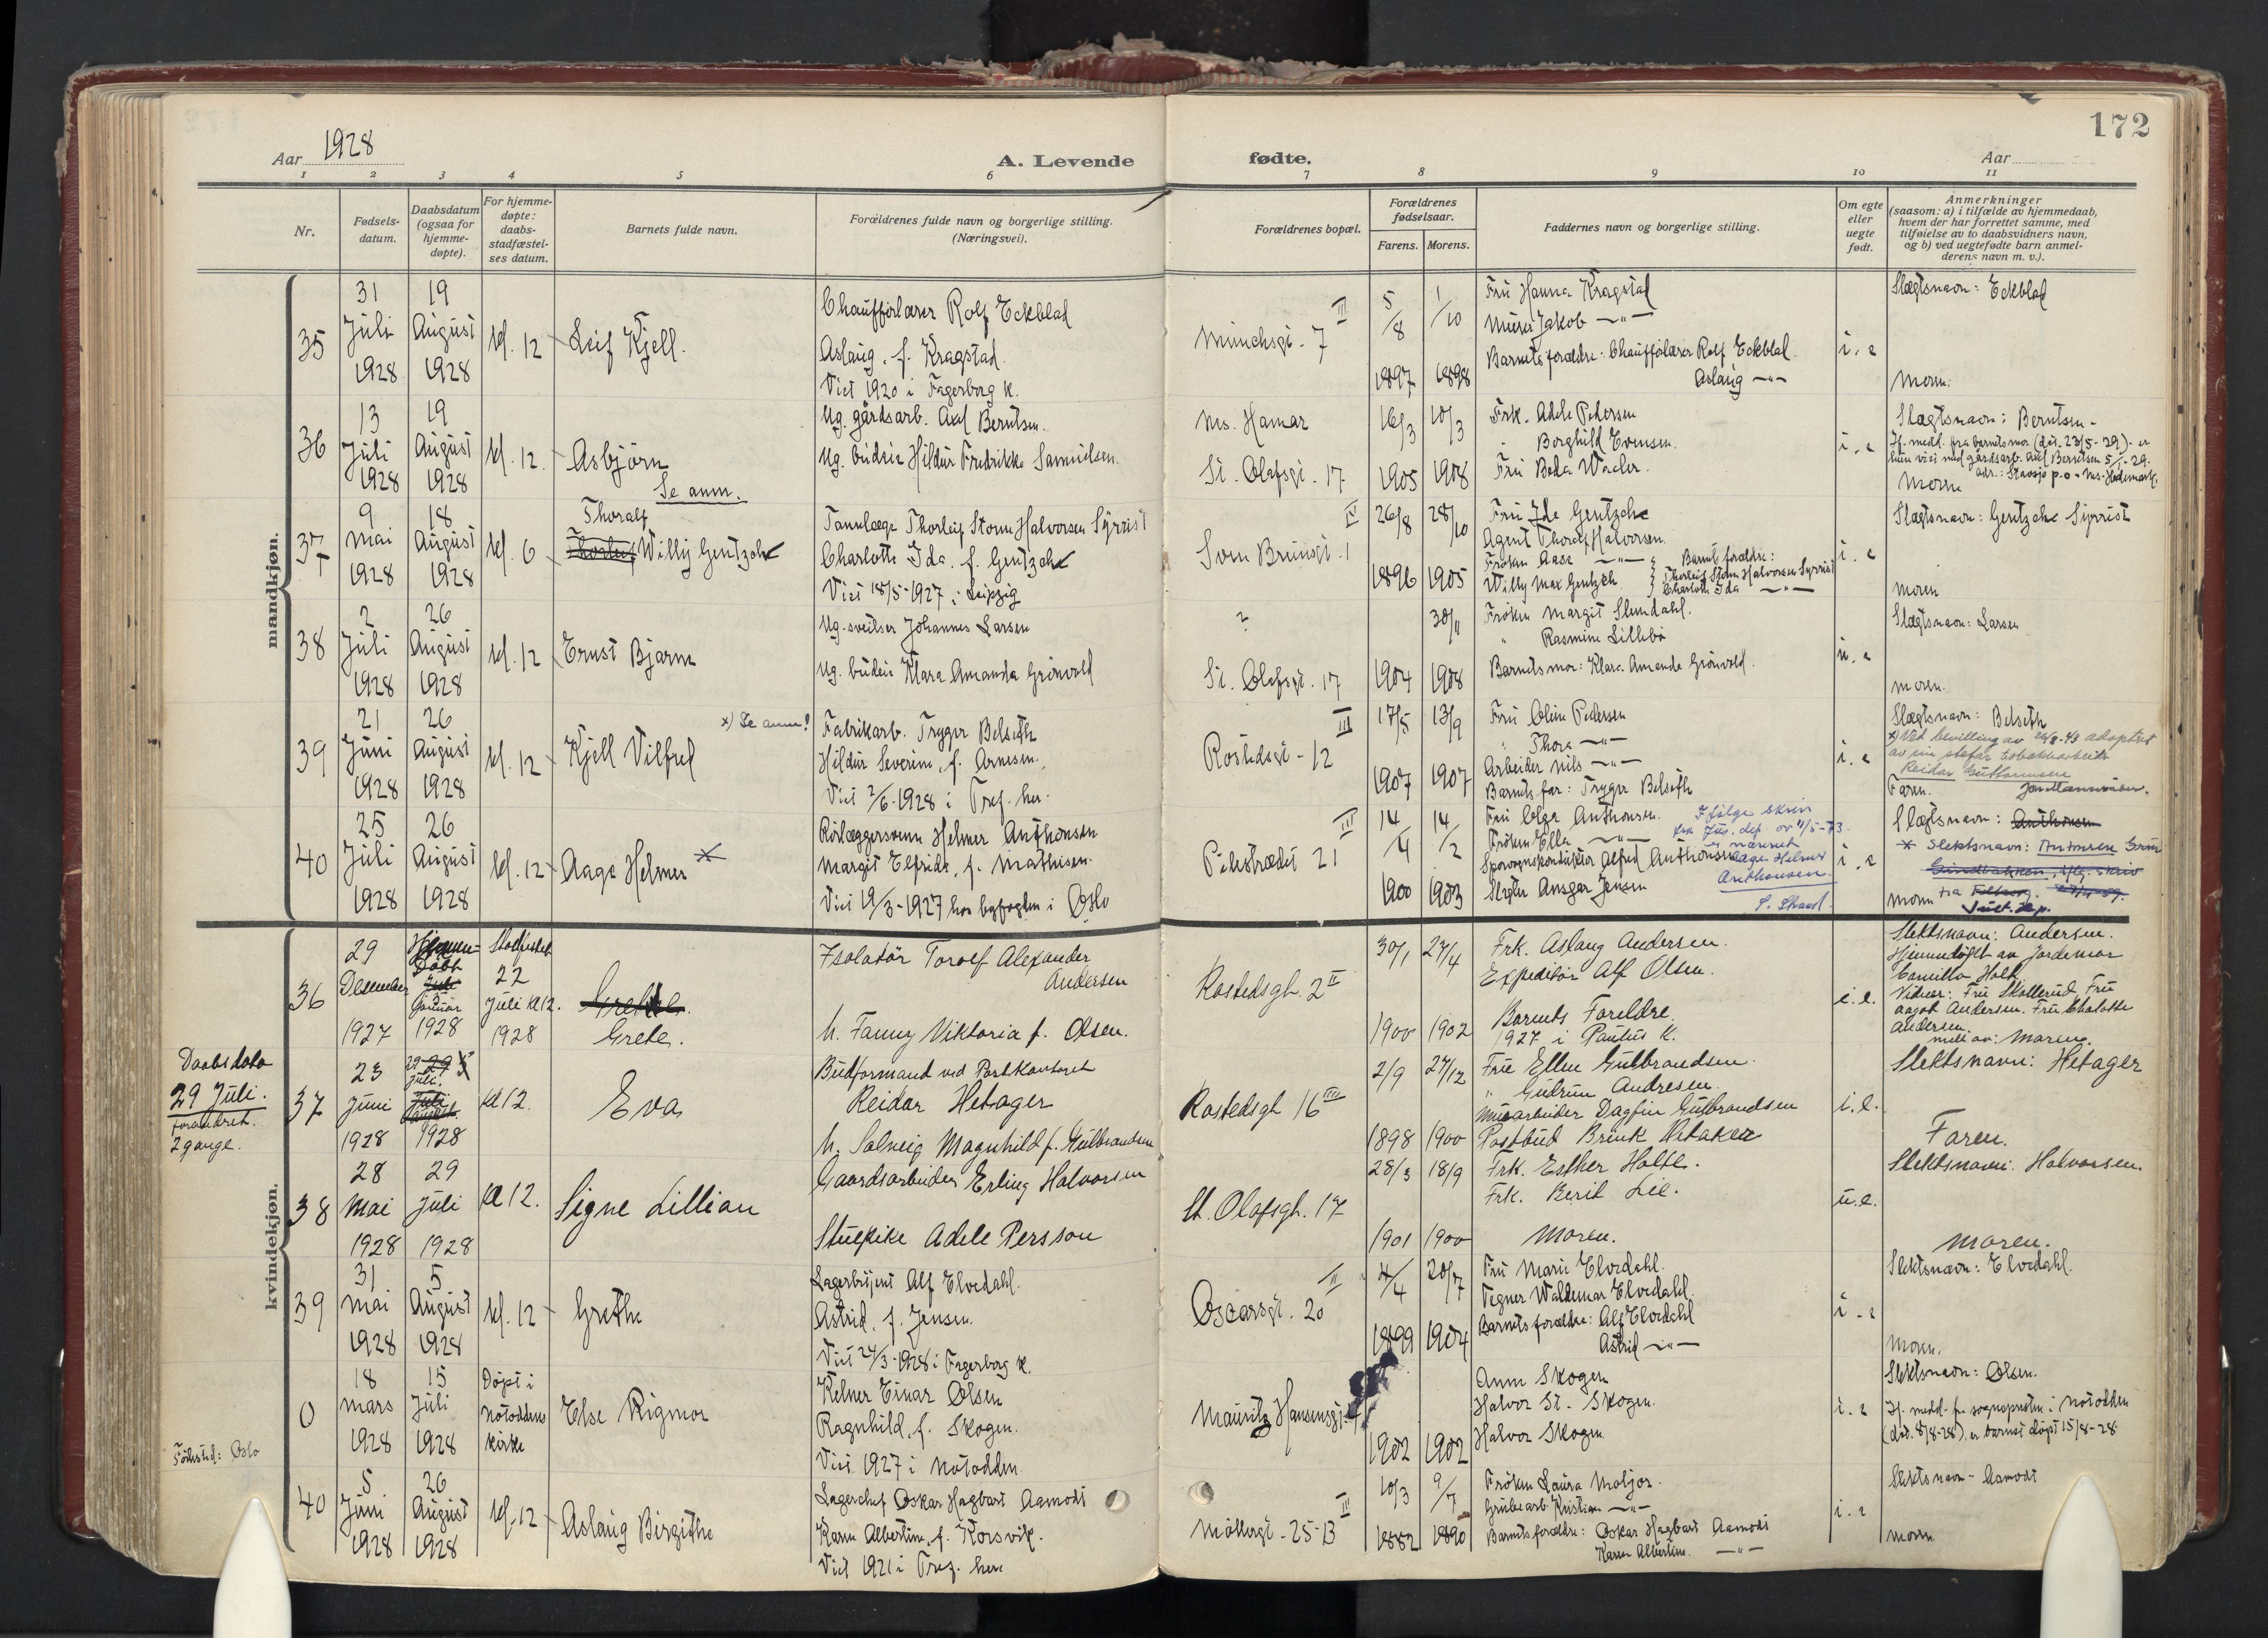 172
Aar 1928
A. Levende
fødte.
Aar
1 2 3 4 5 6 7 8 9 10 11
Nr.
Fødsels-
datum.
Daabsdatum
(ogsaa for
hjemme-
døpte).
For hjemme-
døpte:
daabs-
stadfæstel-
ses datum.
Barnets fulde navn.
Forældrenes fulde navn og borgerlige stilling.
(Næringsvei).
Forældrenes bopæl.
Forældrenes
fødselsaar.
Farens. Morens.
Faddernes navn og borgerlige stilling.
Om egte
eller
uegte
født.
Anmerkninger
(saasom: a) i tilfælde av hjemmedaab,
hvem der har forrettet samme, med
tilføielse av to daabsvidners navn,
og b) ved uegtefødte barn anmel-
derens navn m. v.).
mandkjøn.
35
31
Juli
1928
19
August
1928
kl. 12
Leif Kjell.
Chaufførlærer Rolf Eckblad
Aslaug, f. Kragstad.
Viet 1920 i Fagerborg k.
Munchsgt. 7 III
5/8 1897
1/10 1898
Fru Hanna Kragstad
Murer Jakob —"—
Barnets forældre: Chaufførlærer Rolf Eckblad.
Aslaug —"—
i. e
Slægtsnavn: Eckblad
Moren.
36
13
Juli
1928
19
August
1928
kl. 12.
Asbjørn
Se anm.
Ug. gårdsarb. Axel Berntsen.
Ug. budeie Hildur Fredrikke Samuelsen.
Ns. Hamar
St. Olafsgt. 17
16/3 1905
10/3 1908
Frk. Adele Pedersen
" Borghild Evensen.
Fru Beda Wacler.
i. e
Slægtsnavn: Berntsen -
If. medd. fra barnets mor (dat. 23/5-29) - er
hun viet med gårdsarb. Axel Berntsen 5/1-29.
adr.: Stavsjø p.o - Ns. Hedemark.
Moren
37
T
9
mai
1928
18
August
1928
kl. 6
Thoralf
Thorleif Willy Gentzsch
Tannlæge Thorleif Storm Halvorsen Syrrist
Charlotte Ida, f. Gentzsch
Viet 18/5-1927 i Leipzig
Sven Brunsgt. 1 IV
26/8 1896
28/10 1905
Fru Ida Gentzsch
Agent Thoralf Halvorsen.
Frøken Aase —"—
Willy Max Gentzsch
Barnets forældre:
Thorleif Storm Halvorsen Syrrist
Charlotte Ida —"—
i. e
Slægtsnavn: Gentzsch Syrrist
Moren
38
2
Juli
1928
26
August
1928
kl. 12
Ernst Bjarne
Ug. sveitser Johannes Larsen
Ug. budeie Klara Amanda Grönvold
?
St. Olafsgt. 17
1904
30/11 1908
Frøken Margit Slemdahl.
" Rasmine Lillebø
Barnets mor: Klara Amanda Grönvold.
u. e
Slægtsnavn: Larsen
Moren.
39
21
Juni
1928
26
August
1928
kl. 12
Kjell Vilfred
x) Se anm!
Fabrikarb. Trygve Belseth
Hildur Severine, f. Arnesen.
Viet 2/6-1928 i Tref. her.
Rostedsgt - 12 III
17/5 1907
13/9 1907
Fru Oline Pedersen
" Thora —"—
Arbeider Nils —"—
Barnets far: Trygve Belseth
i. e
Slægtsnavn: Belseth
x) Ved bevilling av 24/8-43 adoptert
av sin stefar tobakkarbeider
Reidar Guttormsen
Faren.
40
25
Juli
1928
26
August
1928
kl. 12
Aage Helmer x
Rørlæggersvenn Helmer Anthonsen
Margit Elfrida, f. Mathisen.
Viet 19/3-1927 hos byfogden i Oslo
Pilestrædet 21 III
14/4 1900
14/2 1903
Fru Olga Anthonsen.
Frøken Ella —"—
Sporvognskonduktør Alfred Anthonsen
Ansgar Jensen
Ifølge skriv
fra Jus. dep av 11/5-73.
er navnet
Aage Helmer
Anthonsen.
i. e
Slægtsnavn: Anthonsen
x Slektsnavn: Antonsen
Moren
kvindekjøn.
36
29
Desember
1927
Hjemme-
Døbt
Juli
Januar
1928
Stadfestet
22
Juli kl 12.
1928
Grethe.
Grete.
Isolatør Toralf Alexander
Andersen
h. Fanny Viktoria f. Olsen.
Rostedsgt. 2 II
30/1 1900
27/4 1902
Frk. Aslaug Andersen.
Expeditør Alf Olsen.
Barnets Foreldre.
1927 i Paulus K.
e. e.
Slektsnavn: Andersen.
Hjemmedøpt av Jordemor
Camilla Holt
Vidner: Fru Skollerud, Fru
Aagot Andersen. Fru Charlotte
Andersen.
meld av: Moren.
Daabsdato
29 Juli.
forandret.
2 gange.
37
23
Juni
1928
29
Juli.
Juli
August
1928
kl 12.
Eva
Budformand ved Postkontoret
Reidar Hetager
h. Solveig Magnhild f. Gulbrandsen
Rostedsgt 16 III
2/9 1898
27/12 1900
Frue Ellen Gulbrandsen
" Gudrun Andresen.
Murarbeider Dagfin Gulbrandsen
Postbud Brink Hetager
i. e.
Slektsnavn: Hetager
Faren.
38
28
Mai
1928
29
Juli
1928
Kl 12.
Signe Lillian
Gaardsarbeider Erling Halvorsen
Stuepike Adele Persson
St. Olafsgt. 17
28/3 1901
18/9 1900
Frk. Esther Holte.
Frk. Berit Lie.
Moren.
u.e.
Slektsnavn: Halvorsen.
Moren.
39
31
mai
1928
5
August
1928
kl. 12
Grethe
Lagerbetjent Alf Elvedahl.
Astrid, f. Jensen.
Viet 24/3-1928 i Fagerborg k.
Oscarsgt. 20 II
4/4 1899
20/7 1904
Fru Marie Elvedahl.
Tegner Waldemar Elvedahl.
Barnets forældre: Alf Elvedahl
Astrid —"—
i. e
Slektsnavn: Elvedahl.
Moren.
Fødested: Oslo
0
18
mars
1928
15
Juli
1928
Døpt i
Notoddens
kirke
Else Rigmor
Kelner Einar Olsen
Ragnhild, f. Skogen.
Viet 1927 i Notodden.
Mauritz Hansensgt.
1902
1902
Anne Skogen
Halvor St. Skogen.
Halvor Skogen
i. e
Slektsnavn: Olsen.
If. medd. fr. sogneprsten i Notodden
(dat. 8/8-28), er barnet døpt 15/8-28.
40
5
Juni
1928
26
August
1928
kl. 12
Aslaug Birgithe
Lagerchef Oskar Hagbart Aamodt
Karen Albertine, f. Korsvik.
Viet 1921 i Tref. her
Møllergt - 25 B III
10/3 1882
9/7 1890
Frøken Laura Moljor.
Grubearb. Kristian —"—
Barnets forældre: Oskar Hagbart Aamodt
Karen Albertine. —"—
i. e
Slektsnavn - Aamodt
Moren